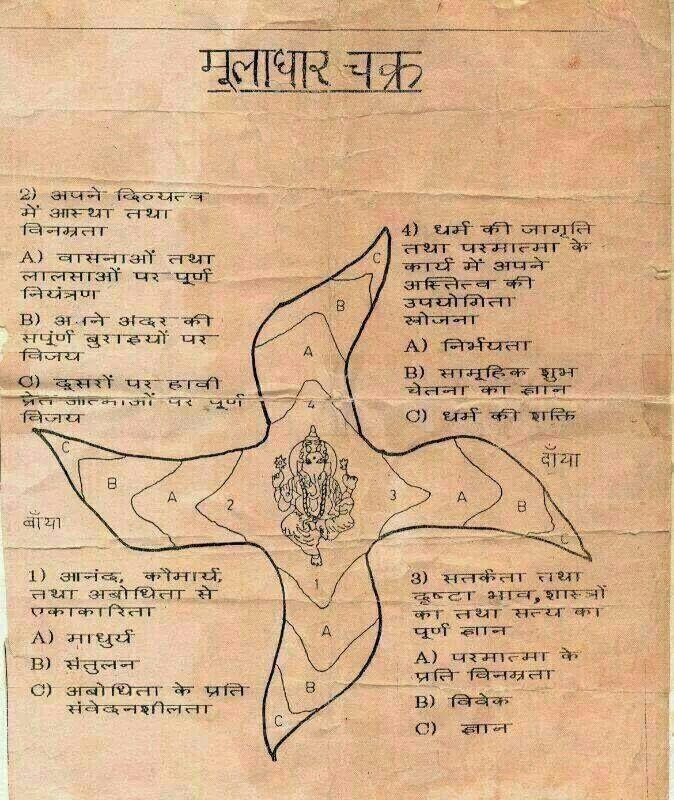 मूलाधार चक्र
2) अपने दिव्यत्व
में आस्था तथा
विनम्रता
A) वासनाओं तथा
लालसाओं पर पूर्ण
नियंत्रण
B) अपने अंदर की
सपूंर्ण बुराइयों पर
विजय
C) दूसरों पर हावी
प्रेत आत्माओं पर पूर्ण
विजय
4) धर्म की जागृति
तथा परमात्मा के
कार्य में अपने
अस्तित्व की
उपयोगिता
खोजना
A) निर्भयता
B) सामूहिक शुभ
चेतना का ज्ञान
C) धर्म की शक्ति
C
B
A
4
C
B
A
2
3
A
B
C
1
A
B
C
बाँया
दाँया
1) आनंद, कौमार्य,
तथा अबोधिता से
एकाकारिता
A) माधुर्य
B) संतुलन
C) अबोधिता के प्रति
संवेदनशीलता
3) सतर्कता तथा
दृष्टा भाव,शास्त्रों
का तथा सत्य का
पूर्ण ज्ञान
A) परमात्मा के
प्रति विनम्रता
B) विवेक
C) ज्ञान